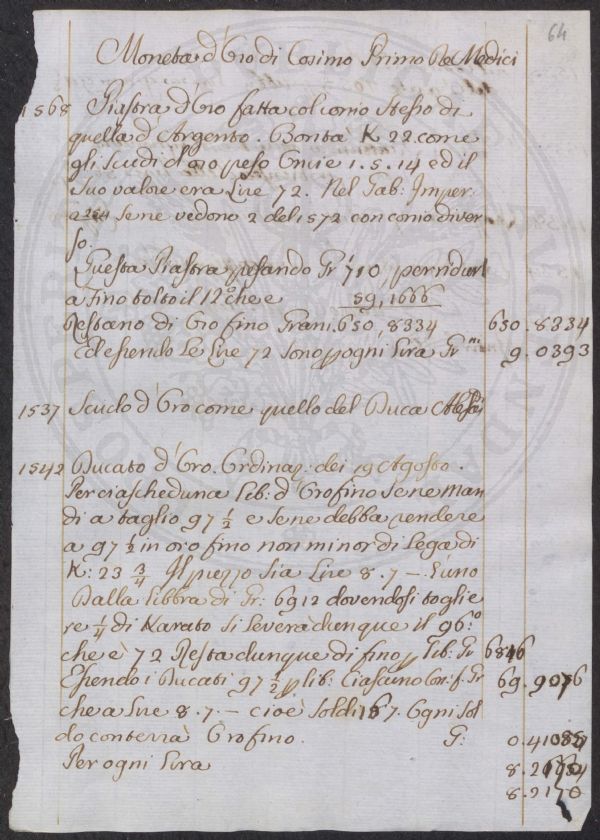 64
Moneta d'Oro di Cosimo Primo De Medici
1568 Piastra d'Oro fatta col conio stesso di
quella d'Argento. Bontà K 22 come
gli scudi d'oro peso Oncie 1.5.14 ed il
suo valore era Lire 72. Nel Gab: Imper:
sene vedono 2 del 1572 con conio diver
so.
Questa Piastra pesando Gr 710, per ridurl
a fino tolto il 12° che e 59,1666
Restano di Oro fino Grani 650,8334 650.8334
Ed essendo le Lire 72 sono p ogni Lira Gr 9.0393
1537 Scudo d'Oro come quello del Duca Aless
1542 Ducato d'Oro. Ordinaz: dei 19 Agosto.
Per ciascheduna Lib: d'Oro fino se ne man
di a taglio 97 ½ e se ne debba rendere
a 97 ½ in oro fino non minor di Lega di
K: 23 ¾ Il pezzo sia Lire 8.7 — L'uno
Dalla Libbra di Gr: 6912 dovendosi toglie
re ¼ di Karato si leverà dunque il 96:°
che è 72 Resta dunque di fino p Lib: Gr 6846
Essendo i Ducati 97 ½ p lib: Ciascuno Con: f. Gr 69.9076
che a Lire 8.7.— cioè Soldi 167. Ogni Sol
do conterrà Oro fino. G: 0.41
Per ogni Lira 8.2
8.2170